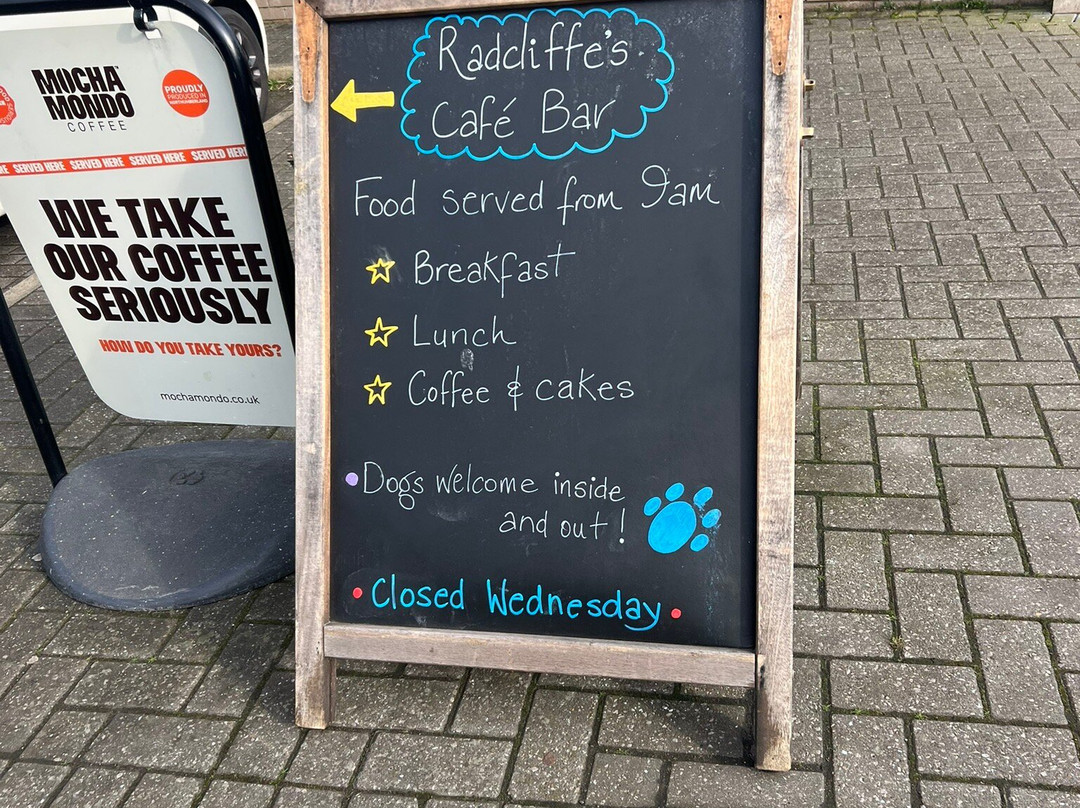 MOCHA
MONDO
COFFEE
PROUDLY
PRODUCED IN
NORTHUMBERLAND
SERVED HERE SERVED HERE SERVED HERE SERVED HERE
WE TAKE
OUR COFFEE
SERIOUSLY
HOW DO YOU TAKE YOURS?
mochamondo.co.uk
Radcliffe's
Café Bar
Food served from 9am
Breakfast
Lunch
Coffee & cakes
Dogs welcome inside
and out!
Closed Wednesday